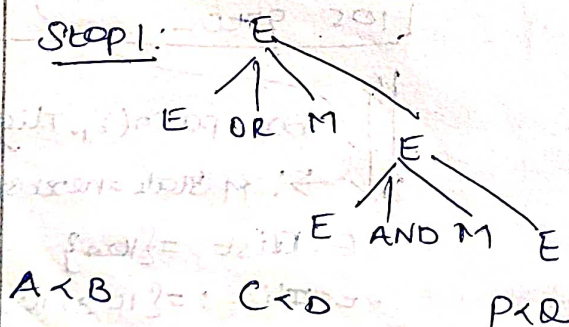 Step 1: E
E OR M
E
E AND M E
A < B C < D P < Q